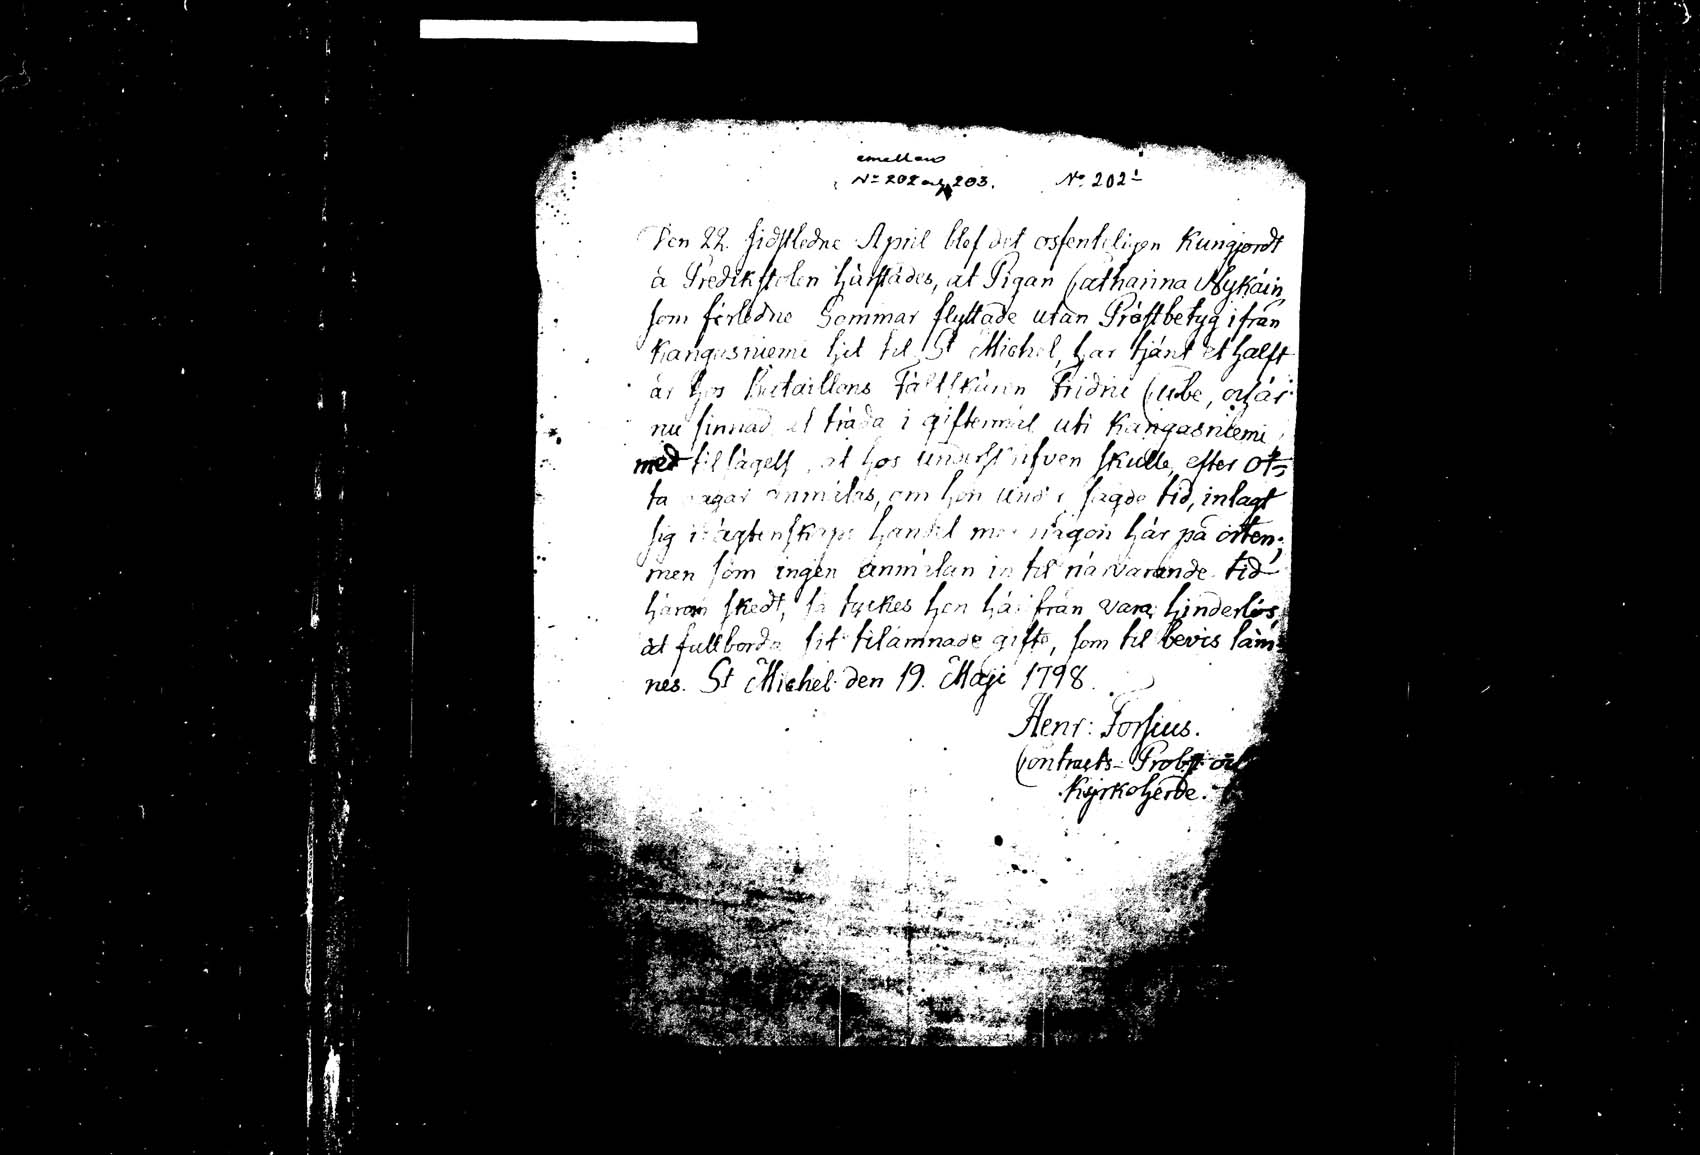 emellan
No 202 och 203. No 202½
Den 22 sidstledne April blef det offenteligen Kungjordt
å Predikstolen härstädes, at Pigan Catharina Nykäin,
som förledne Sommar flyttade utan Prästbetyg ifrån
Kangasniemi hit til St Michel, har tjänt et halft
år hos Bataillons Fältskären Fridric Cube, och är
nu sinnad at träda i giftermål uti Kangasniemi,
med tilsägelse, at hos underskrifven skulle, efter ot-
ta dagar anmälas, om hon under sagde tid, inlagt
sig i ägtenskaps handel med någon här på orten;
men som ingen anmälan in til närvarande tid
härom skedt, så tyckes hon härifrån vara hinderlös,
at fullborda sit tilämnade gifte, som til bevis läm-
nes. St Michel den 19. Maji 1798.
Henr: Forsius.
Contracts-Probst och
Kyrkoherde.